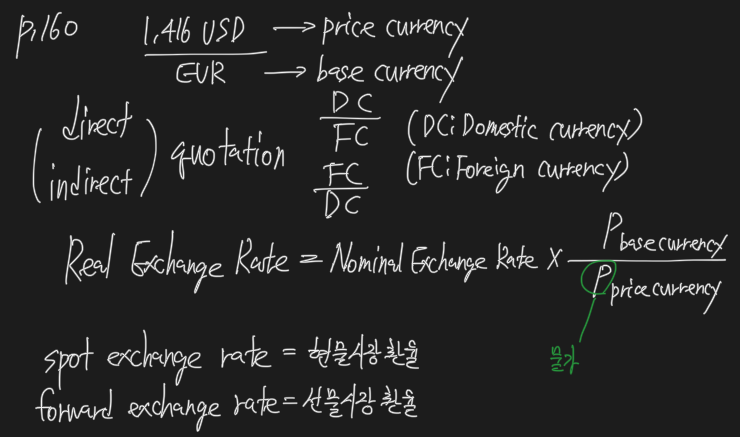 p.160
1.416 USD → price currency
EUR → base currency
(direct indirect) quotation
DC/FC (DC: Domestic currency)
FC/DC (FC: Foreign currency)
Real Exchange Rate = Nominal Exchange Rate × P base currency / P price currency
물가
spot exchange rate = 현물시장 환율
forward exchange rate = 선물시장 환율